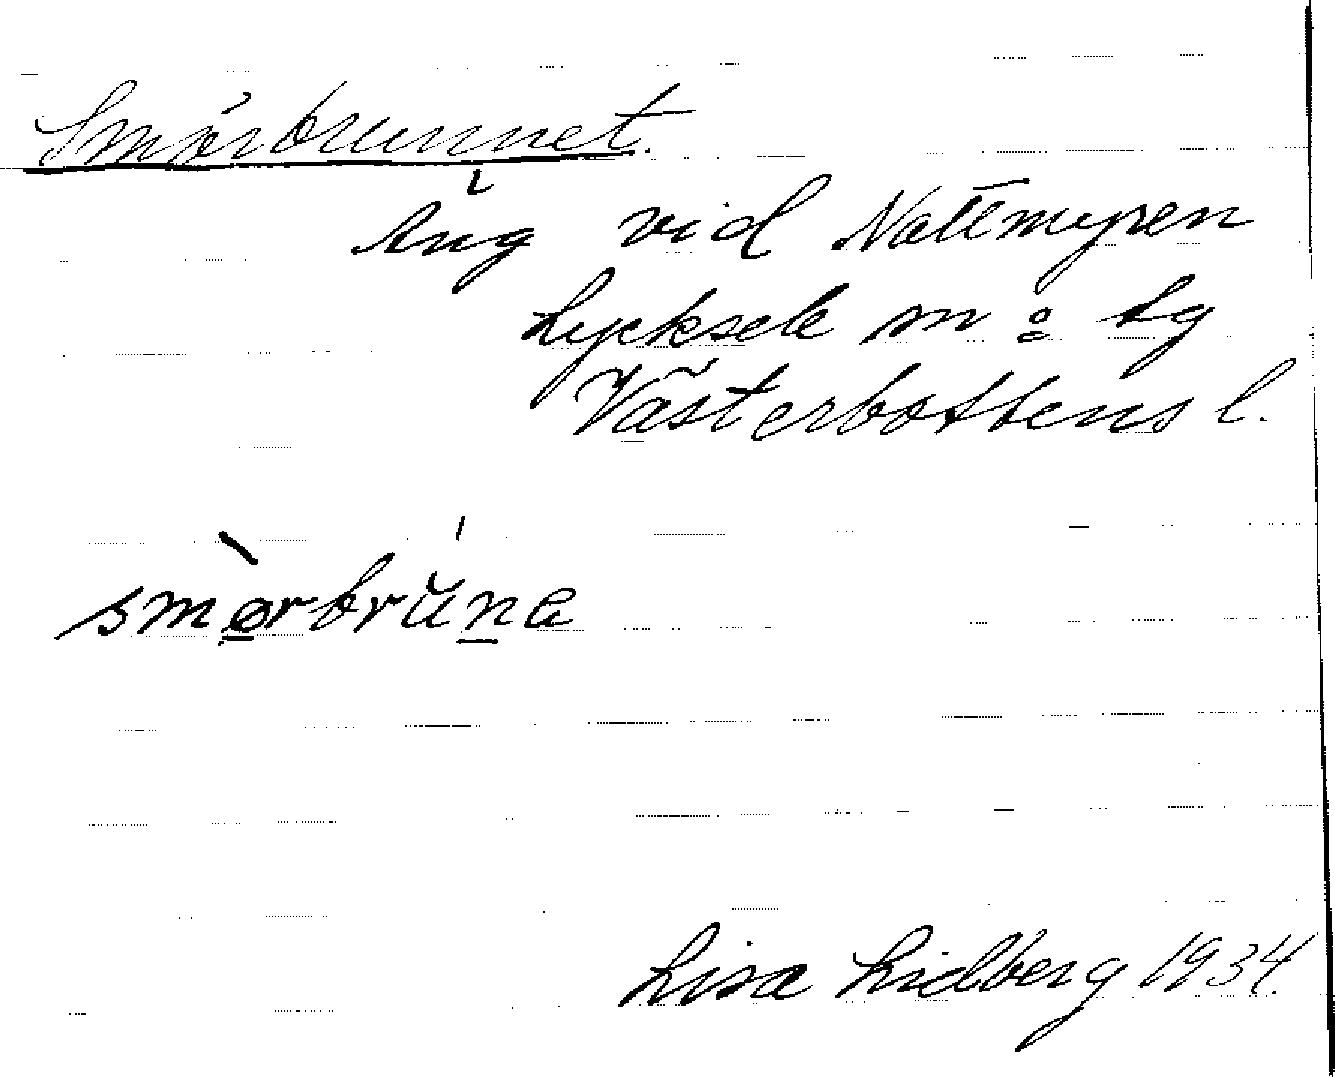 Smörbrunnet.
Äng vid Nattmyren
Lycksele sn o Lg
Västerbottens l.
smørbruna
Lisa Lidberg 1934.